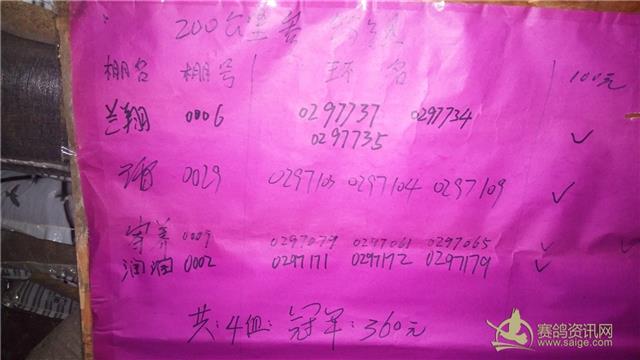 200公里
棚名 棚号 环 名 100元
兰翔 0006 0297737 0297734
0297735 ✓
0029 0297103 0297104 0297109 ✓
寄养 0009 0297079 0297061 0297065 ✓ ✓
润润 0002 0297171 0297172 0297179 ✓
共:4组:冠军:360元
赛鸽资讯网
www.saige.com